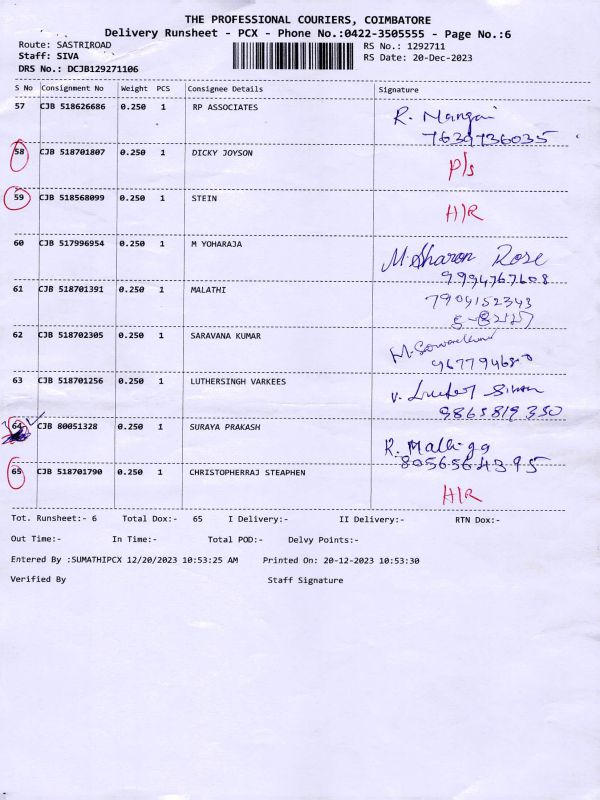 THE PROFESSIONAL COURIERS, COIMBATORE
Delivery Runsheet - PCX - Phone No.:0422-3505555 - Page No.:6
Route: SASTRIROAD RS No.: 1292711
Staff: SIVA RS Date: 20-Dec-2023
DRS No.: DCJB129271106
S No Consignment No Weight PCS Consignee Details Signature
57 CJB 518626686 0.250 1 RP ASSOCIATES R. Mangai
7639736035
58 CJB 518701807 0.250 1 DICKY JOYSON P/s
59 CJB 518568099 0.250 1 STEIN H/R
60 CJB 517996954 0.250 1 M YOHARAJA M. Sharon Rose
9994767608
61 CJB 518701391 0.250 1 MALATHI 7904152343
62 CJB 518702305 0.250 1 SARAVANA KUMAR
63 CJB 518701256 0.250 1 LUTHERSINGH VARKEES
9865819350
64 CJB 80051328 0.250 1 SURAYA PRAKASH R. Malliga
8056564395
65 CJB 518701790 0.250 1 CHRISTOPHERRAJ STEAPHEN H/R
Tot. Runsheet:- 6 Total Dox:- 65 I Delivery:- II Delivery:- RTN Dox:-
Out Time:- In Time:- Total POD:- Delvy Points:-
Entered By :SUMATHIPCX 12/20/2023 10:53:25 AM Printed On: 20-12-2023 10:53:30
Verified By Staff Signature